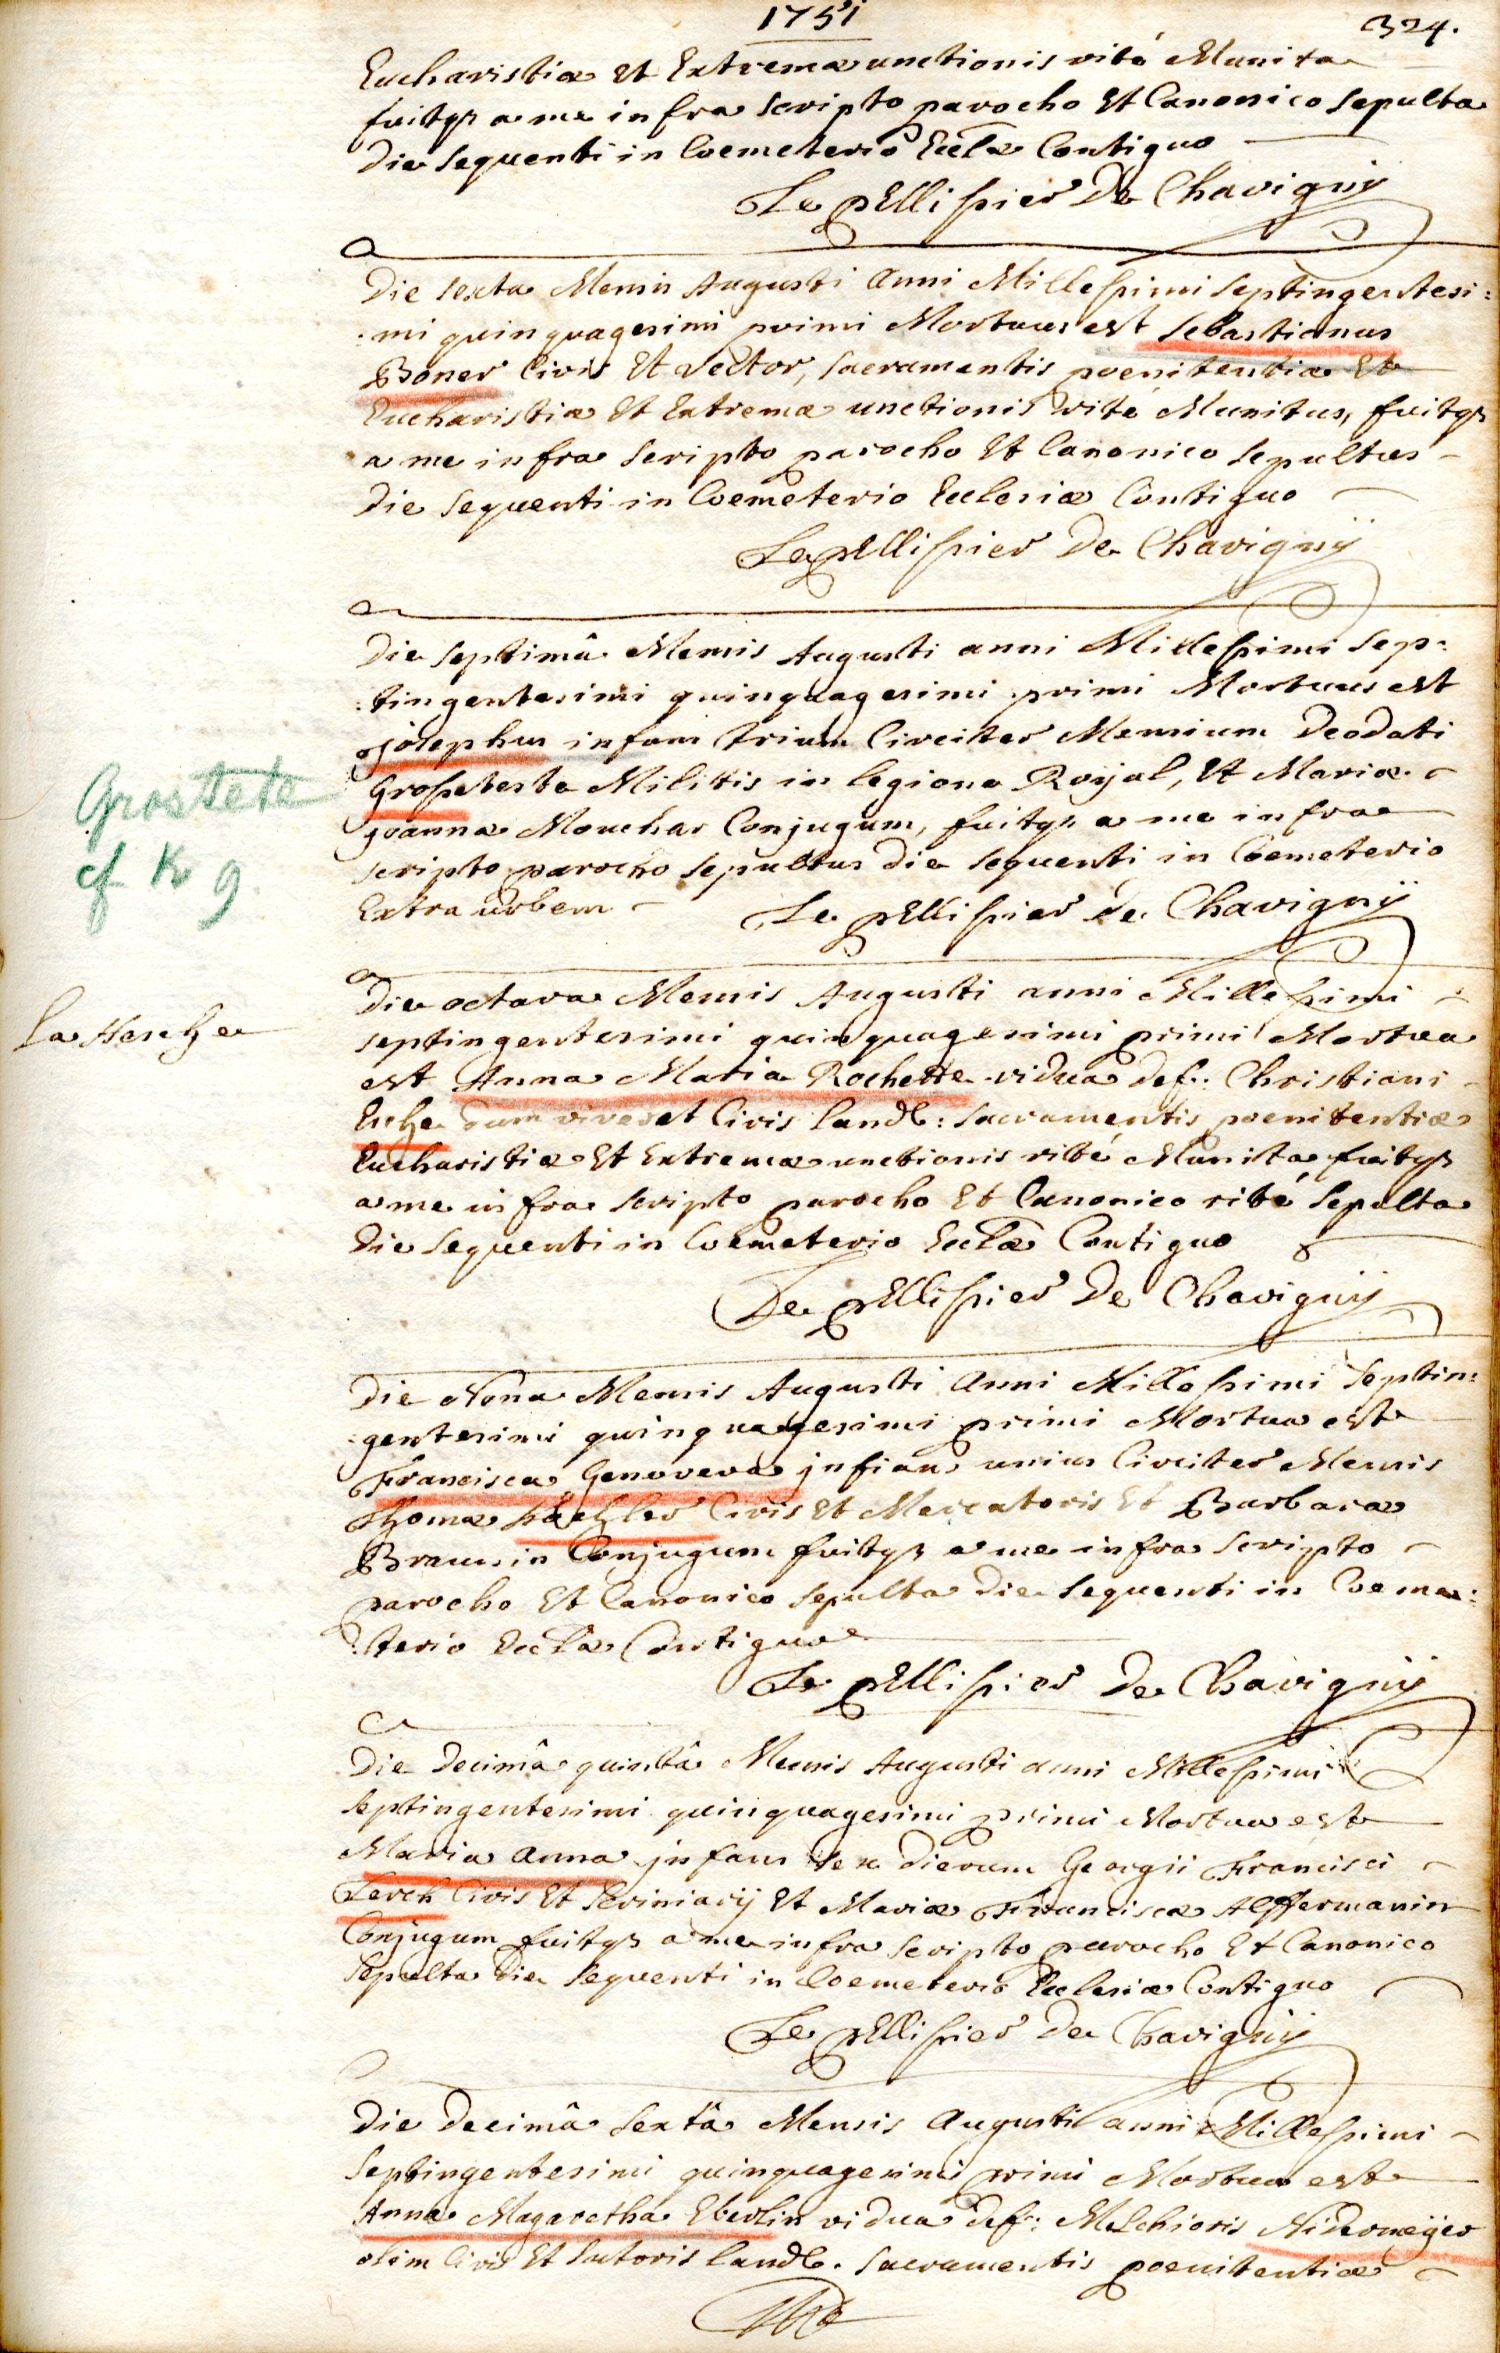 1751
324.
Eucharistiæ Et Extremæ unctionis rité Munita
fuitqz a me infra scripto parocho Et Canonico sepulta
die sequenti in Coemeterio Ecclæ Contiguo
Le pEllissier De Chavignÿ
Die sexta Mensis Augusti Anni Millessimi septingentesi:
:mi quinquagesimi primi Mortuus est Sebastianus
Boner Civis Et Vector, sacramentis poenitentiæ Et
Eucharistiæ Et Extremæ unctionis rité Munitus, fuitqz
a me infra scripto parocho Et Canonico sepultus
die sequenti in Coemeterio Ecclesiæ Contiguo
Le pEllissier De Chavignÿ
Die septimâ Mensis Augusti anni Millessimi sep:
:tingentesimi quinquagesimi primi Mortuus est
josephus infans trium Circiter Mensium Deodati
Grosseteste Militis in legione Royal, Et Mariæ
joannæ Mouchar Conjugum, fuitqz a me infra
scripto parocho sepultus die sequenti in Coemeterio
Extra urbem
Le pEllissier de Chavignÿ
Grostete
cf K 9.
Die octava Mensis Augusti anni Millessimi
septingentesimi quinquagesimi primi Mortua
La Hesche
est Anna Maria Rochette vidua def: Christiani
Esche dum viveret Civis Land: sacramentis poenitentiæ
Eucharistiæ Et Extremæ unctionis rité Munita, fuitqz
a me infra scripto parocho Et Canonico rité sepulta
die sequenti in Coemeterio Eccłæ Contiguo
Le pEllissier De Chavignÿ
Die Nona Mensis Augusti Anni Millessimi septin:
:gentesimi quinquagesimi primi Mortua est
Francisca Genoveva jnfans unius Circiter Mensis
Thomæ Civis Et Mercatoris Et Barbaræ
Braunin Conjugum fuitqz a me infra scripto
parocho Et Canonico sepulta die sequenti in Coeme:
:terio Eccłæ Contiguo
Le pEllissier De Chavignÿ
Die Decimâ quintâ Mensis Augusti anni Millessimi
septingentesimi quinquagesimi primi Mortua est
Maria Anna jnfans sex dierum Georgii Francisci
Lerch Civis Et scriniarij Et Mariæ Franciscæ Alffermanin
Conjugum fuitqz a me infra scripto parocho Et Canonico
Sepulta die sequenti in Coemeterio Ecclesiæ Contiguo
Le pEllissier De Chavignÿ
Die Decimâ sextâ Mensis Augusti anni Millessimi
septingentesimi quinquagesimi primi Mortua est
Anna Magaretha Eberlin vidua def: Melchioris Nidermeÿer
olim Civis Et sutoris Land. sacramentis poenitentiæ